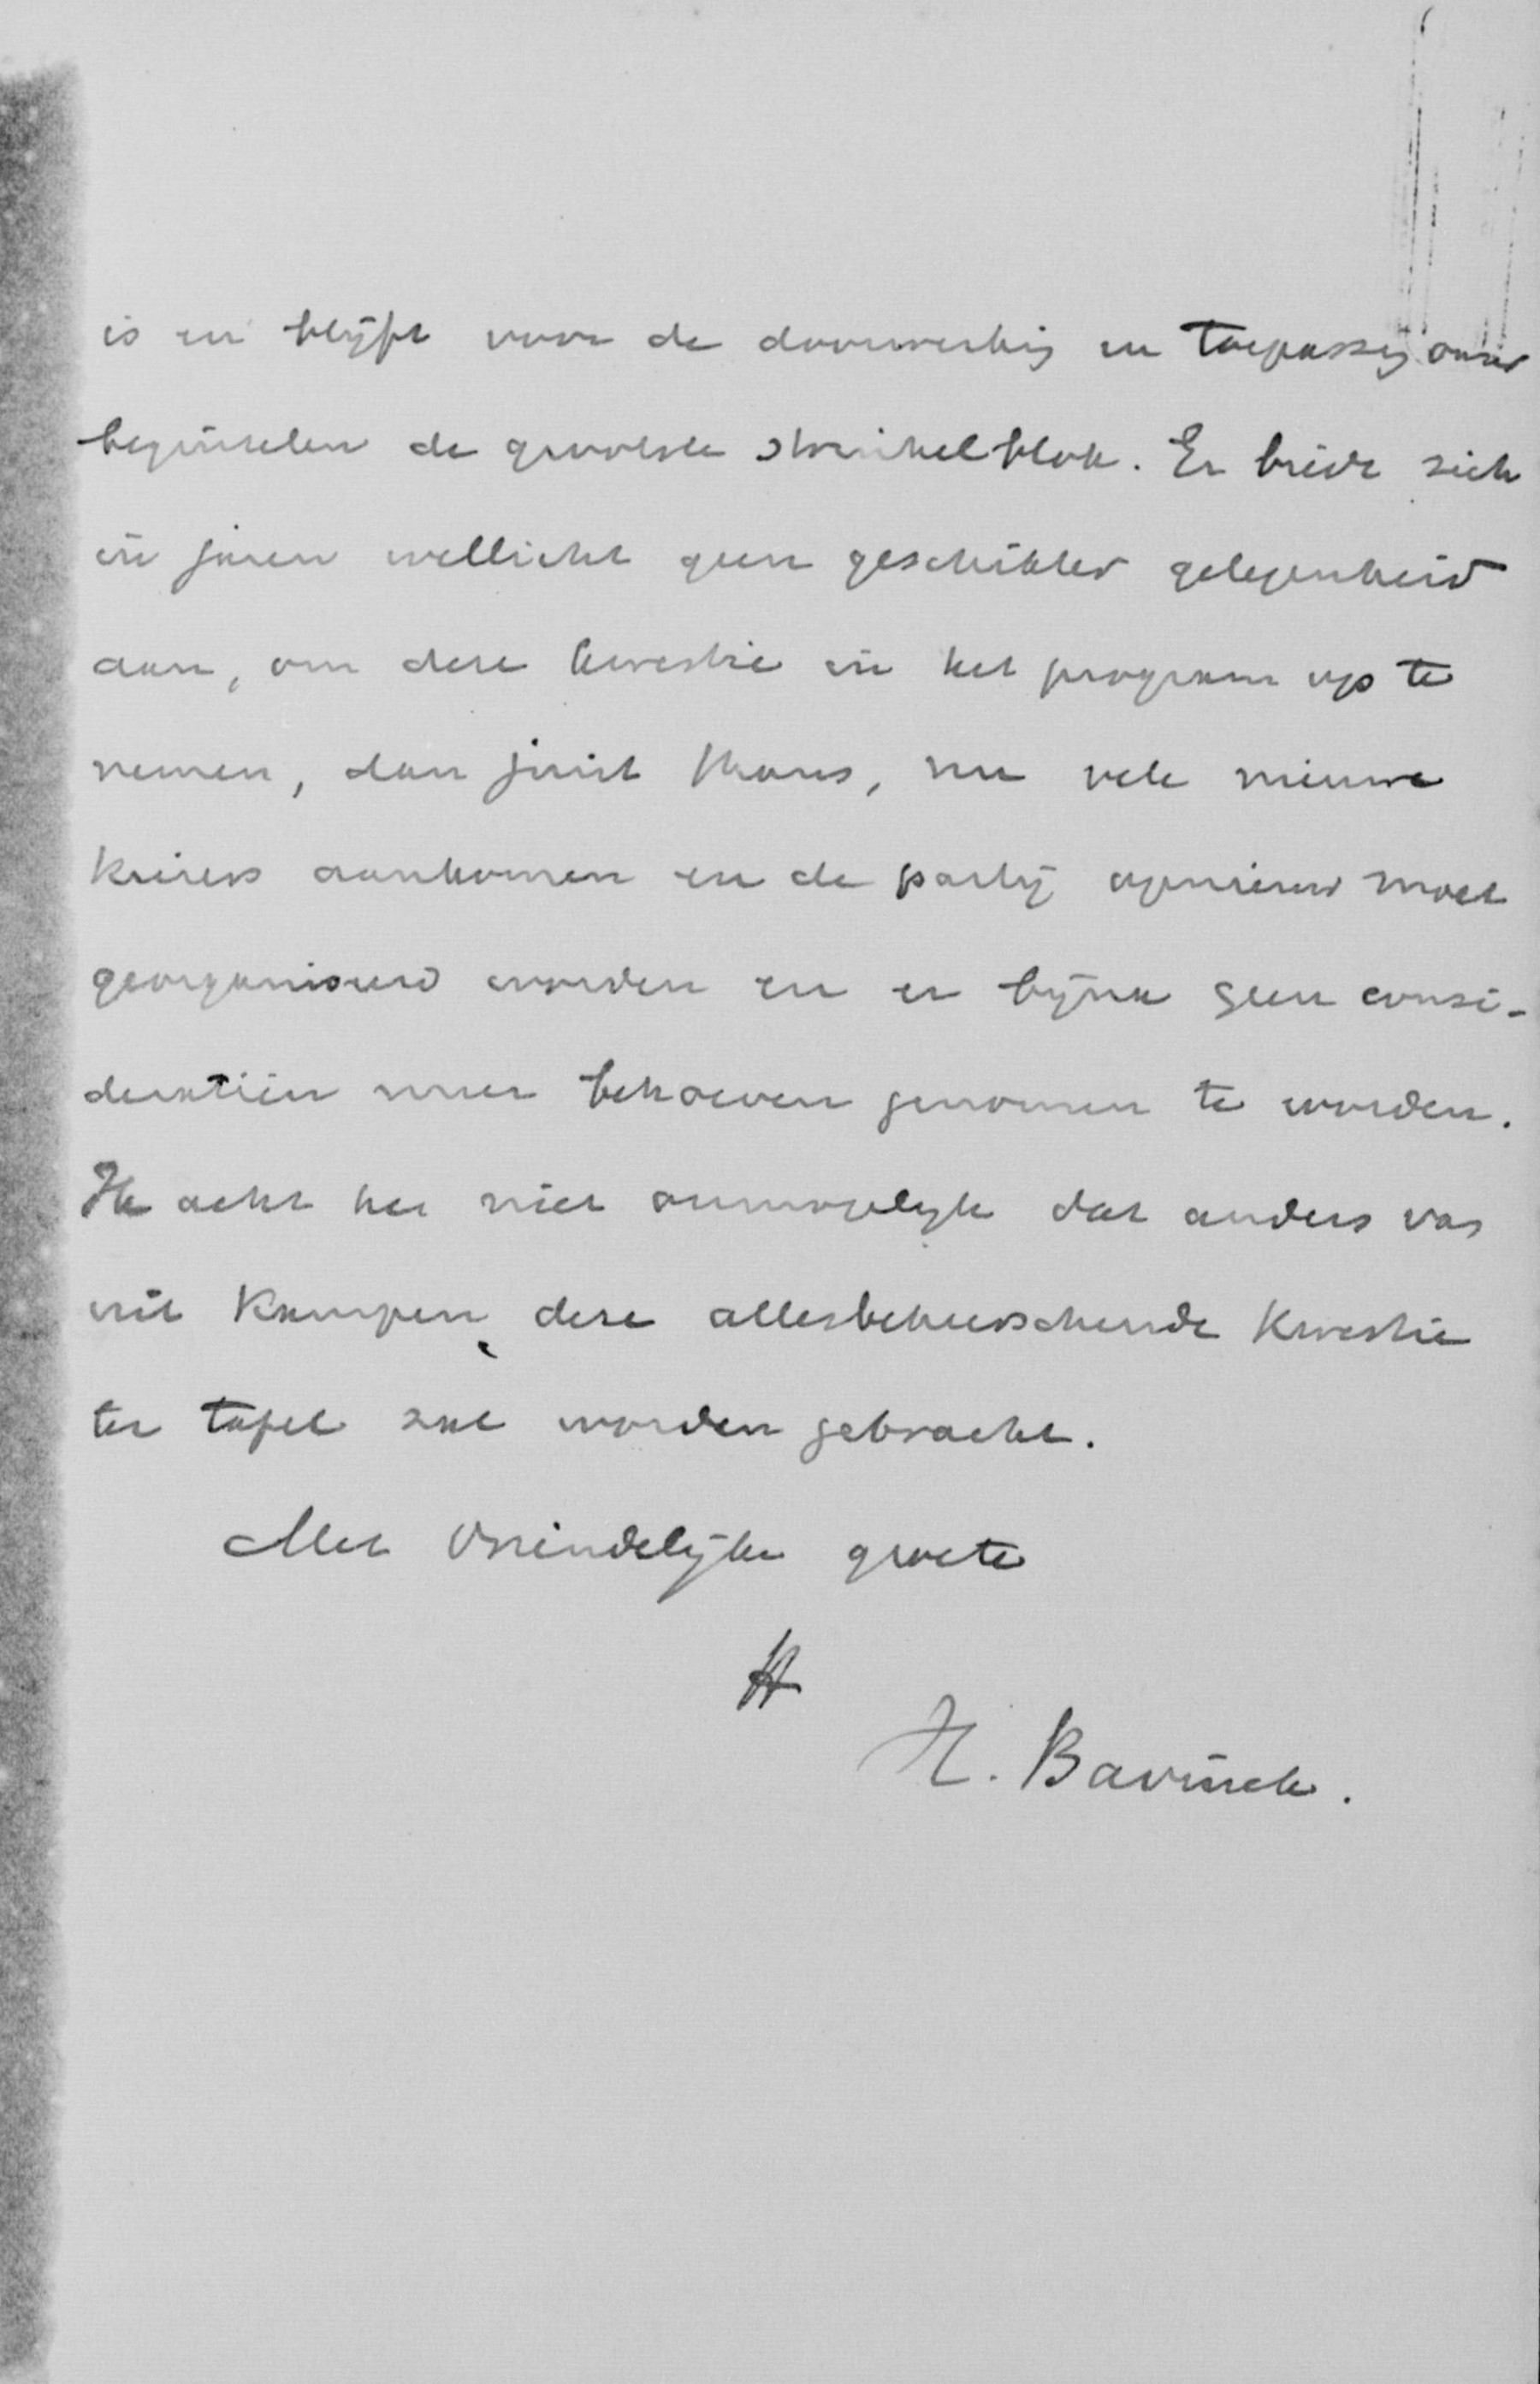 is en blijft voor de doorwerking en toepassing onzer
beginselen de grootste struikelblok. Er biedt zich
in jaren wellicht geen geschikter gelegenheid
aan, om deze kwestie in het program op te
nemen, dan juist thans, nu vele nieuwe
kiezers aankomen en de partij opnieuw moet
georganiseerd worden en er bijna geen consi-
deratiën meer behoeven genomen te worden.
Ik acht het niet onmogelijk dat anders vas
uit Kampen deze allesbeheerschende kwestie
ter tafel zal worden gebracht.
Met vriendelijke groete
H
H. Bavinck.